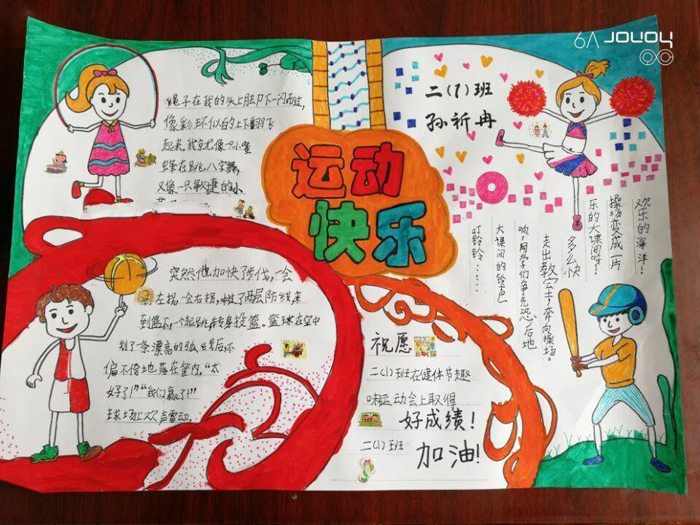 6A JOUOY
运动
快乐
二(1)班
孙祈冉
绳子在我的头上脚下一闪而过,
像彩环似的上下翻飞
起来,我就像一只小蜜
蜂在跳八字舞,
又像一只敏捷的小
突然他加快了步伐,一会
左拐,一会右拐,冲过了两层防线来
到篮下,一个起跳转身投篮。篮球在空中
划了一条漂亮的弧线后不
偏不倚地落在筐内,"太
好了!""我们赢了!"
球场上欢声雷动。
叮铃铃……
大课间的铃声
响,同学们争先恐后地
走出教室,奔向操场。
多么快
乐的大课间呀!
操场变成一片
欢乐的海洋!
祝愿
二(1)班在健体节趣
味运动会上取得
好成绩!
二(1)班
加油!